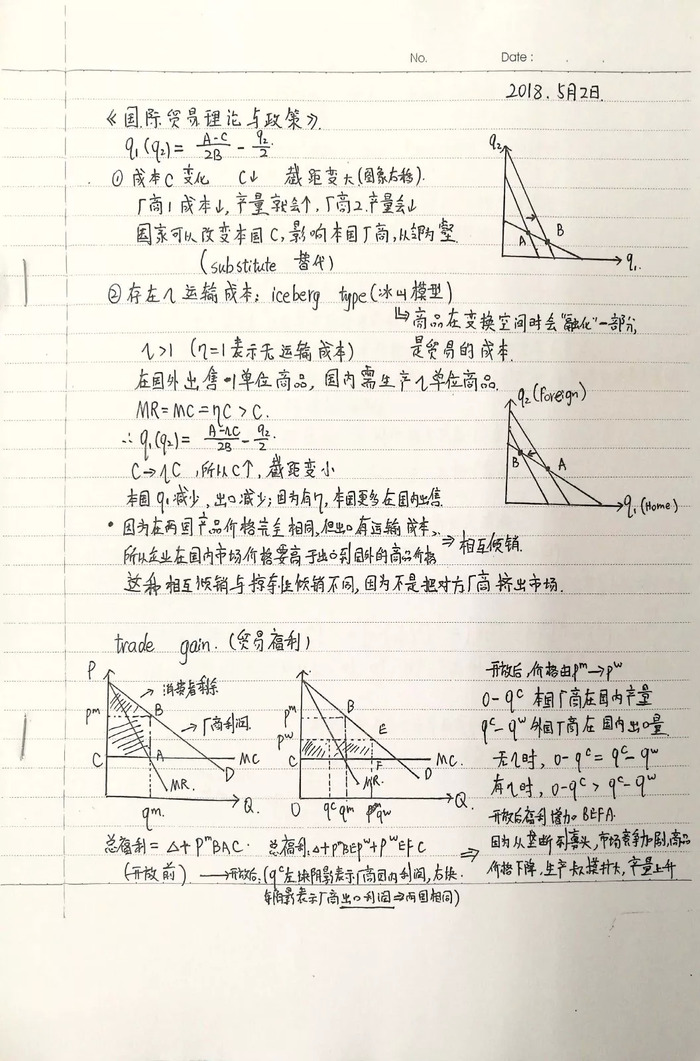 No. Date:
2018.5月2日.
《国际贸易理论与政策》
q₁(q₂) = A-C/2B - q₂/2
① 成本C变化 C↓ 截距变大(图象右移).
厂商1成本↓,产量就会↑,厂商2产量会↓
国家可以改变本国C,影响本国厂商,从而为
(substitute 替代)
q₂
A B
q₁.
② 存在η运输成本: iceberg type(冰山模型)
↳商品在变换空间时会"融化"一部分,
是贸易的成本.
η>1 (η=1表示无运输成本)
在国外出售1单位商品,国内需生产η单位商品.
MR=MC=ηC>C.
∴ q₁(q₂) = A-ηC/2B - q₂/2.
C→ηC,所以C↑,截距变小
本国q₁减少,出口减少;因为有η,本国更多在国内出售.
q₂(Foreign)
B A
q₁(Home)
• 因为在两国产品价格完全相同,但出口有运输成本,
所以企业在国内市场价格要高于出口到国外的商品价格 ⇒ 相互倾销.
这种相互倾销与掠夺性倾销不同,因为不是把对方厂商挤出市场.
trade gain.(贸易福利)
P
消费者剩余
Pᵐ B
厂商利润.
C A MC
MR. D
qᵐ. Q.
Pᵐ B
Pʷ E
C F MC.
MR. D
O qᶜ qᵐ qʷ Q.
开放后,价格由Pᵐ→Pʷ
0-qᶜ 本国厂商在国内产量
qᶜ-qʷ 外国厂商在国内出口量.
无η时, 0-qᶜ = qᶜ-qʷ
有η时, 0-qᶜ > qᶜ-qʷ
开放后福利增加BEFA.
因为从垄断到寡头,市场竞争加剧,商品
价格下降,生产规模扩大,产量上升
总福利=△+PᵐBAC. 总福利:△+PᵐBEPʷ+PʷEFC ⇒
(开放前) → 开放后:(qᶜ左块阴影表示厂商国内利润,右块
阴影表示厂商出口利润⇒两国相同)